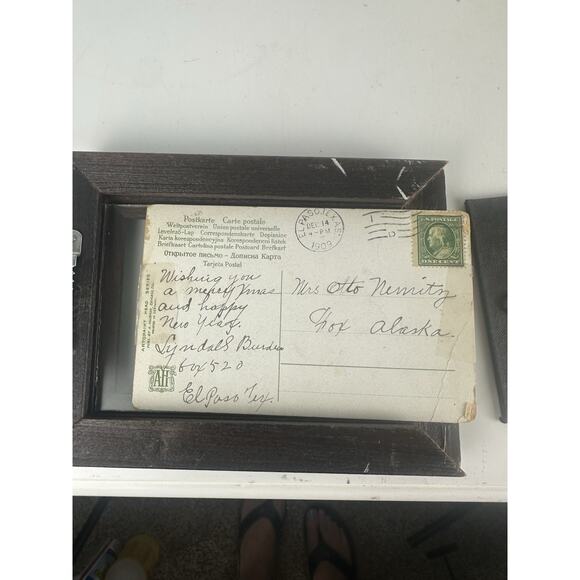 Postkarte Carte postale
Weltpostverein Union postale universelle
Levelező-Lap Correspondenzkarte Dopisnice
Karta korespondencyjna Korespondenční lístek
Briefkaart Cartolina postale Postcard Brefkort
Открытое письмо - Дописна Карта
Tarjeta Postal
EL PASO, TEXAS
DEC 14
4-PM
1909
U.S. POSTAGE
ONE CENT
Wishing you
a merry Xmas
and happy
New Year.
Lyndal S Burdin
box 520
El Paso Tex.
Mrs Otto Nemitz
Fox Alaska.
SERIES
AH